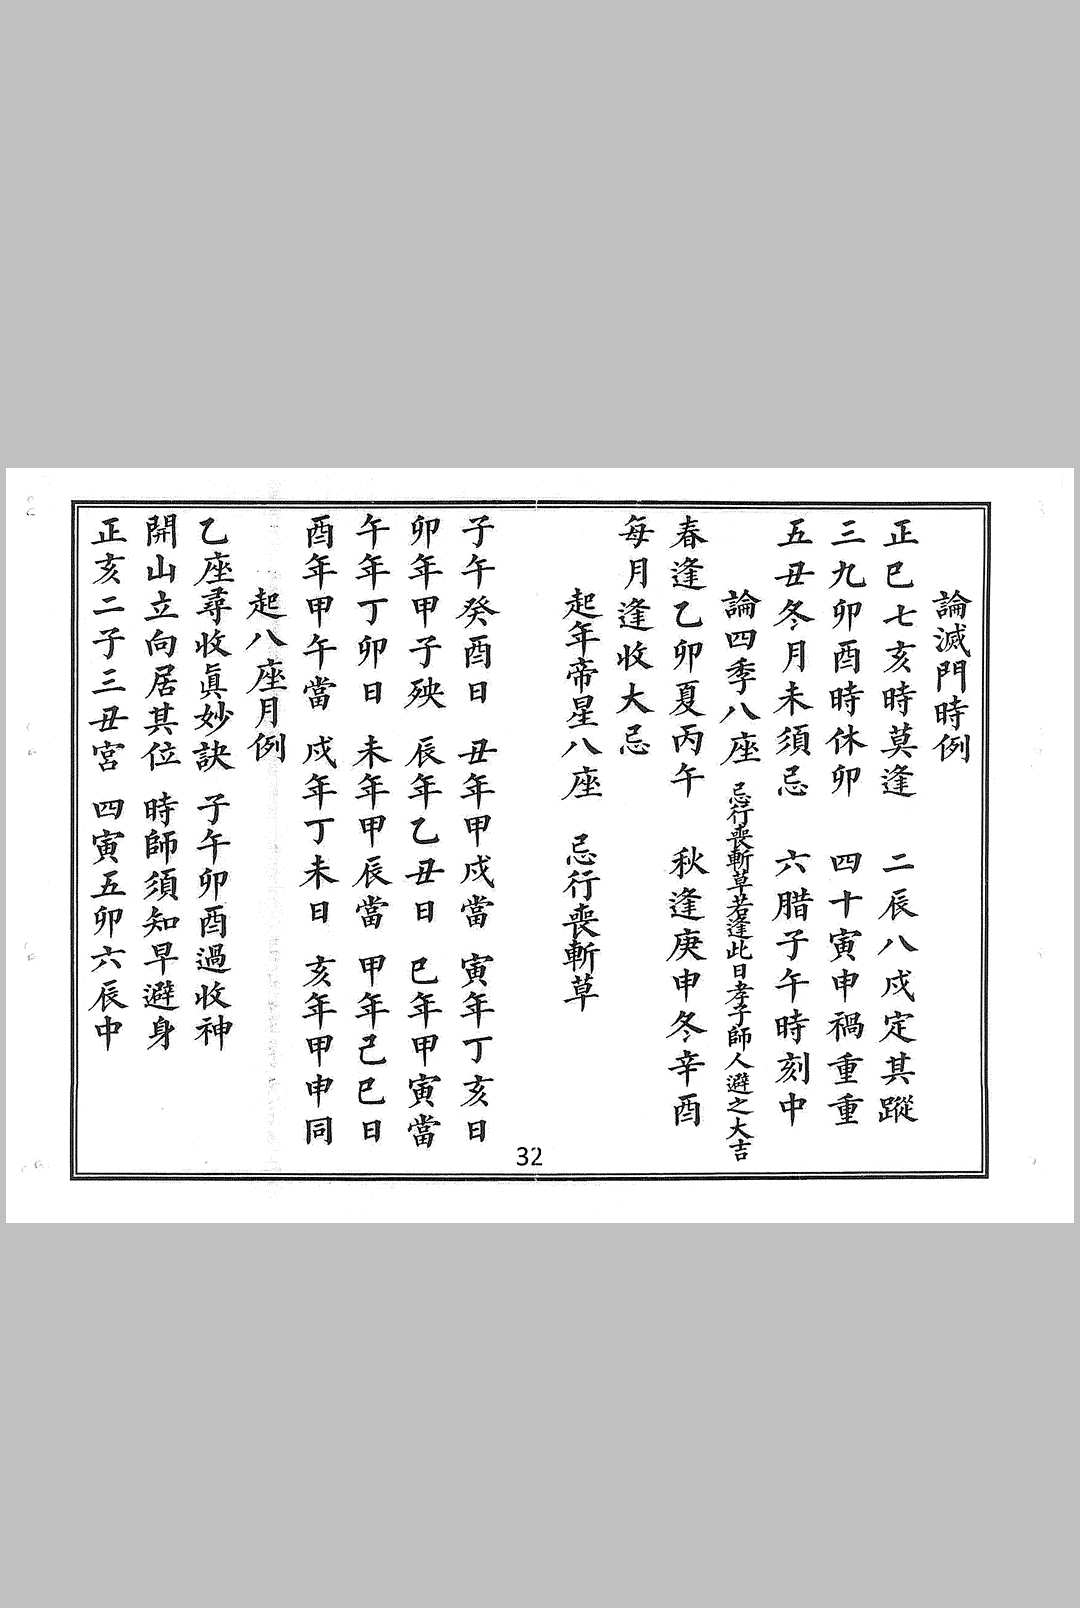 論滅門時例
正巳七亥時莫逢　二辰八戌定其蹤
三九卯酉時休卯　四十寅申禍重重
五丑冬月未須忌　六腊子午時刻中
論四季八座　忌行喪斬草若逢此日孝子師人避之大吉
春逢乙卯夏丙午　秋逢庚申冬辛酉
每月逢收大忌
起年帝星八座　忌行喪斬草
子午癸酉日　丑年甲戌當　寅年丁亥日
卯年甲子殃　辰年乙丑日　巳年甲寅當
午年丁卯日　未年甲辰當　甲年己巳日
酉年甲午當　戌年丁未日　亥年甲申同
起八座月例
乙座尋收眞妙訣　子午卯酉過收神
開山立向居其位　時師須知早避身
正亥二子三丑宮　四寅五卯六辰中
32